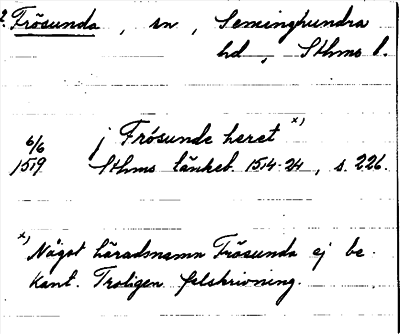 2. Frösunda, sn, Seminghundra
hd, Sthms l.
6/6 j Frösunde heret x)
1519 Sthms tänkeb. 1514-24, s. 226.
x) Något häradsnamn Frösunda ej be-
kant. Troligen felskrivning.